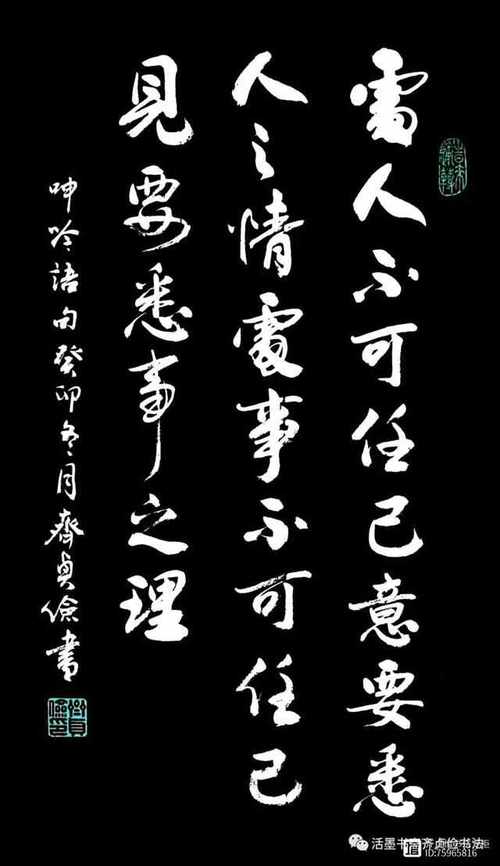 處人不可任己意要悉
人之情處事不可任己
見要悉事之理
呻吟語句癸卯冬月齊貞儉書
活墨书斋齐贞俭书法
ID:75965816